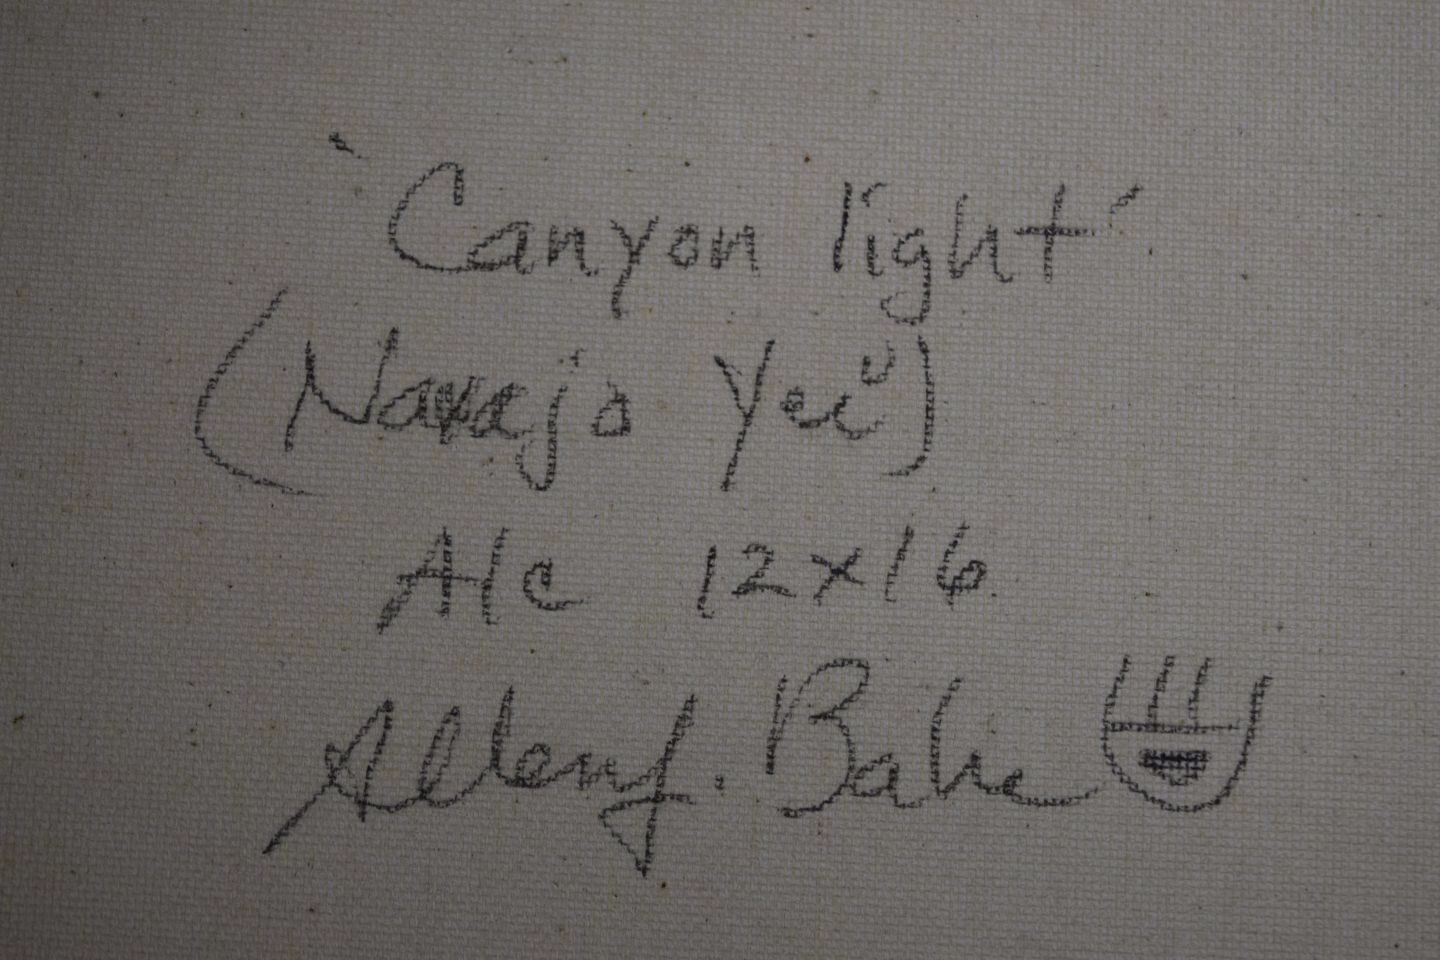 "Canyon light"
(Navajo Yei)
A/c 12x16
Allen J. Bahe